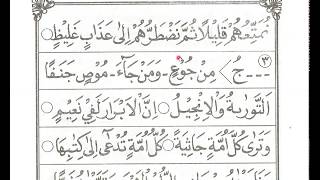 نُمَتِّعُهُمْ قَلِيْلًا ثُمَّ نَضْطَرُّهُمْ اِلٰى عَذَابٍ غَلِيْظٍ ○
٣ --- جُ › مِنْ جُوْعٍ - وَمَنْ جَآءَ - مُوْصٍ جَنَفًا
التَّوْرٰىةَ وَالْاِنْجِيْلَ ○ اِنَّ الْاَبْرَارَ لَفِيْ نَعِيْمٍ
وَتَرٰى كُلَّ اُمَّةٍ جَاثِيَةً ○ كُلُّ اُمَّةٍ تُدْعٰٓى اِلٰى كِتٰبِهَا